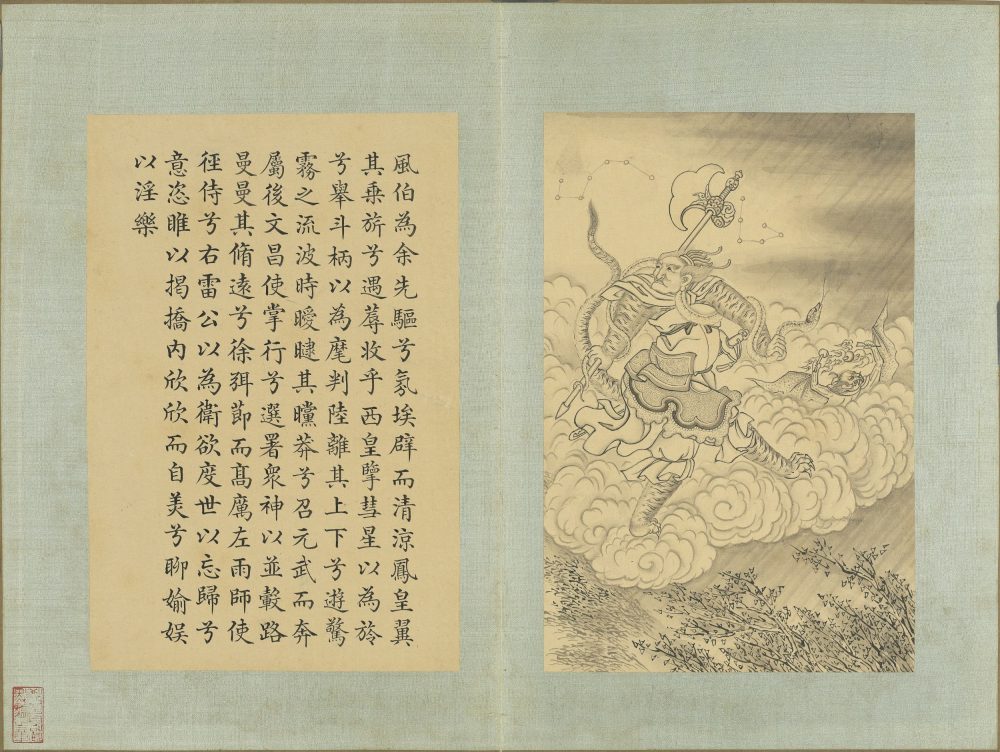 風伯為余先驅兮氛埃辟而清涼鳳皇翼
其乘旂兮遇蓐收乎西皇擥彗星以為旍
兮舉斗柄以為麾判陸離其上下兮遊驚
霧之流波時曖曃其曭莽兮召元武而奔
屬後文昌使掌行兮選署衆神以並轂路
曼曼其脩遠兮徐弭節而高厲左雨師使
徑侍兮右雷公以為衛欲度世以忘歸兮
意恣睢以揭撟内欣欣而自美兮聊媮娛
以淫樂